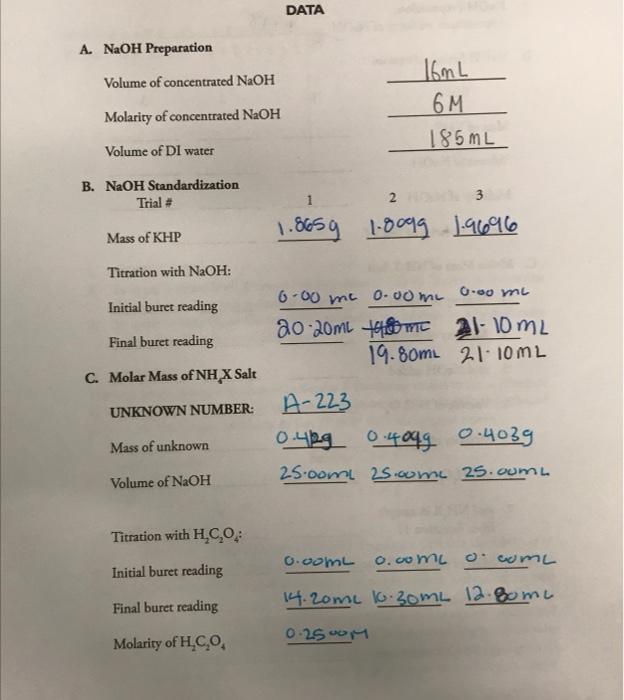 DATA
A. NaOH Preparation
Volume of concentrated NaOH 16mL
Molarity of concentrated NaOH 6M
Volume of DI water 185mL
B. NaOH Standardization
Trial # 1 2 3
Mass of KHP 1.865g 1.809g 1.969g
Titration with NaOH:
Initial buret reading 0.00 mL 0.00 mL 0.00 mL
Final buret reading 20.20mL 21.10mL
19.80mL 21.10mL
C. Molar Mass of NH₄X Salt
UNKNOWN NUMBER: A-223
Mass of unknown 0.409g 0.403g
Volume of NaOH 25.00mL 25.00mL 25.00mL
Titration with H₂C₂O₄:
Initial buret reading 0.00mL 0.00mL 0.00mL
Final buret reading 14.20mL 10.30mL 12.80mL
Molarity of H₂C₂O₄ 0.2500M